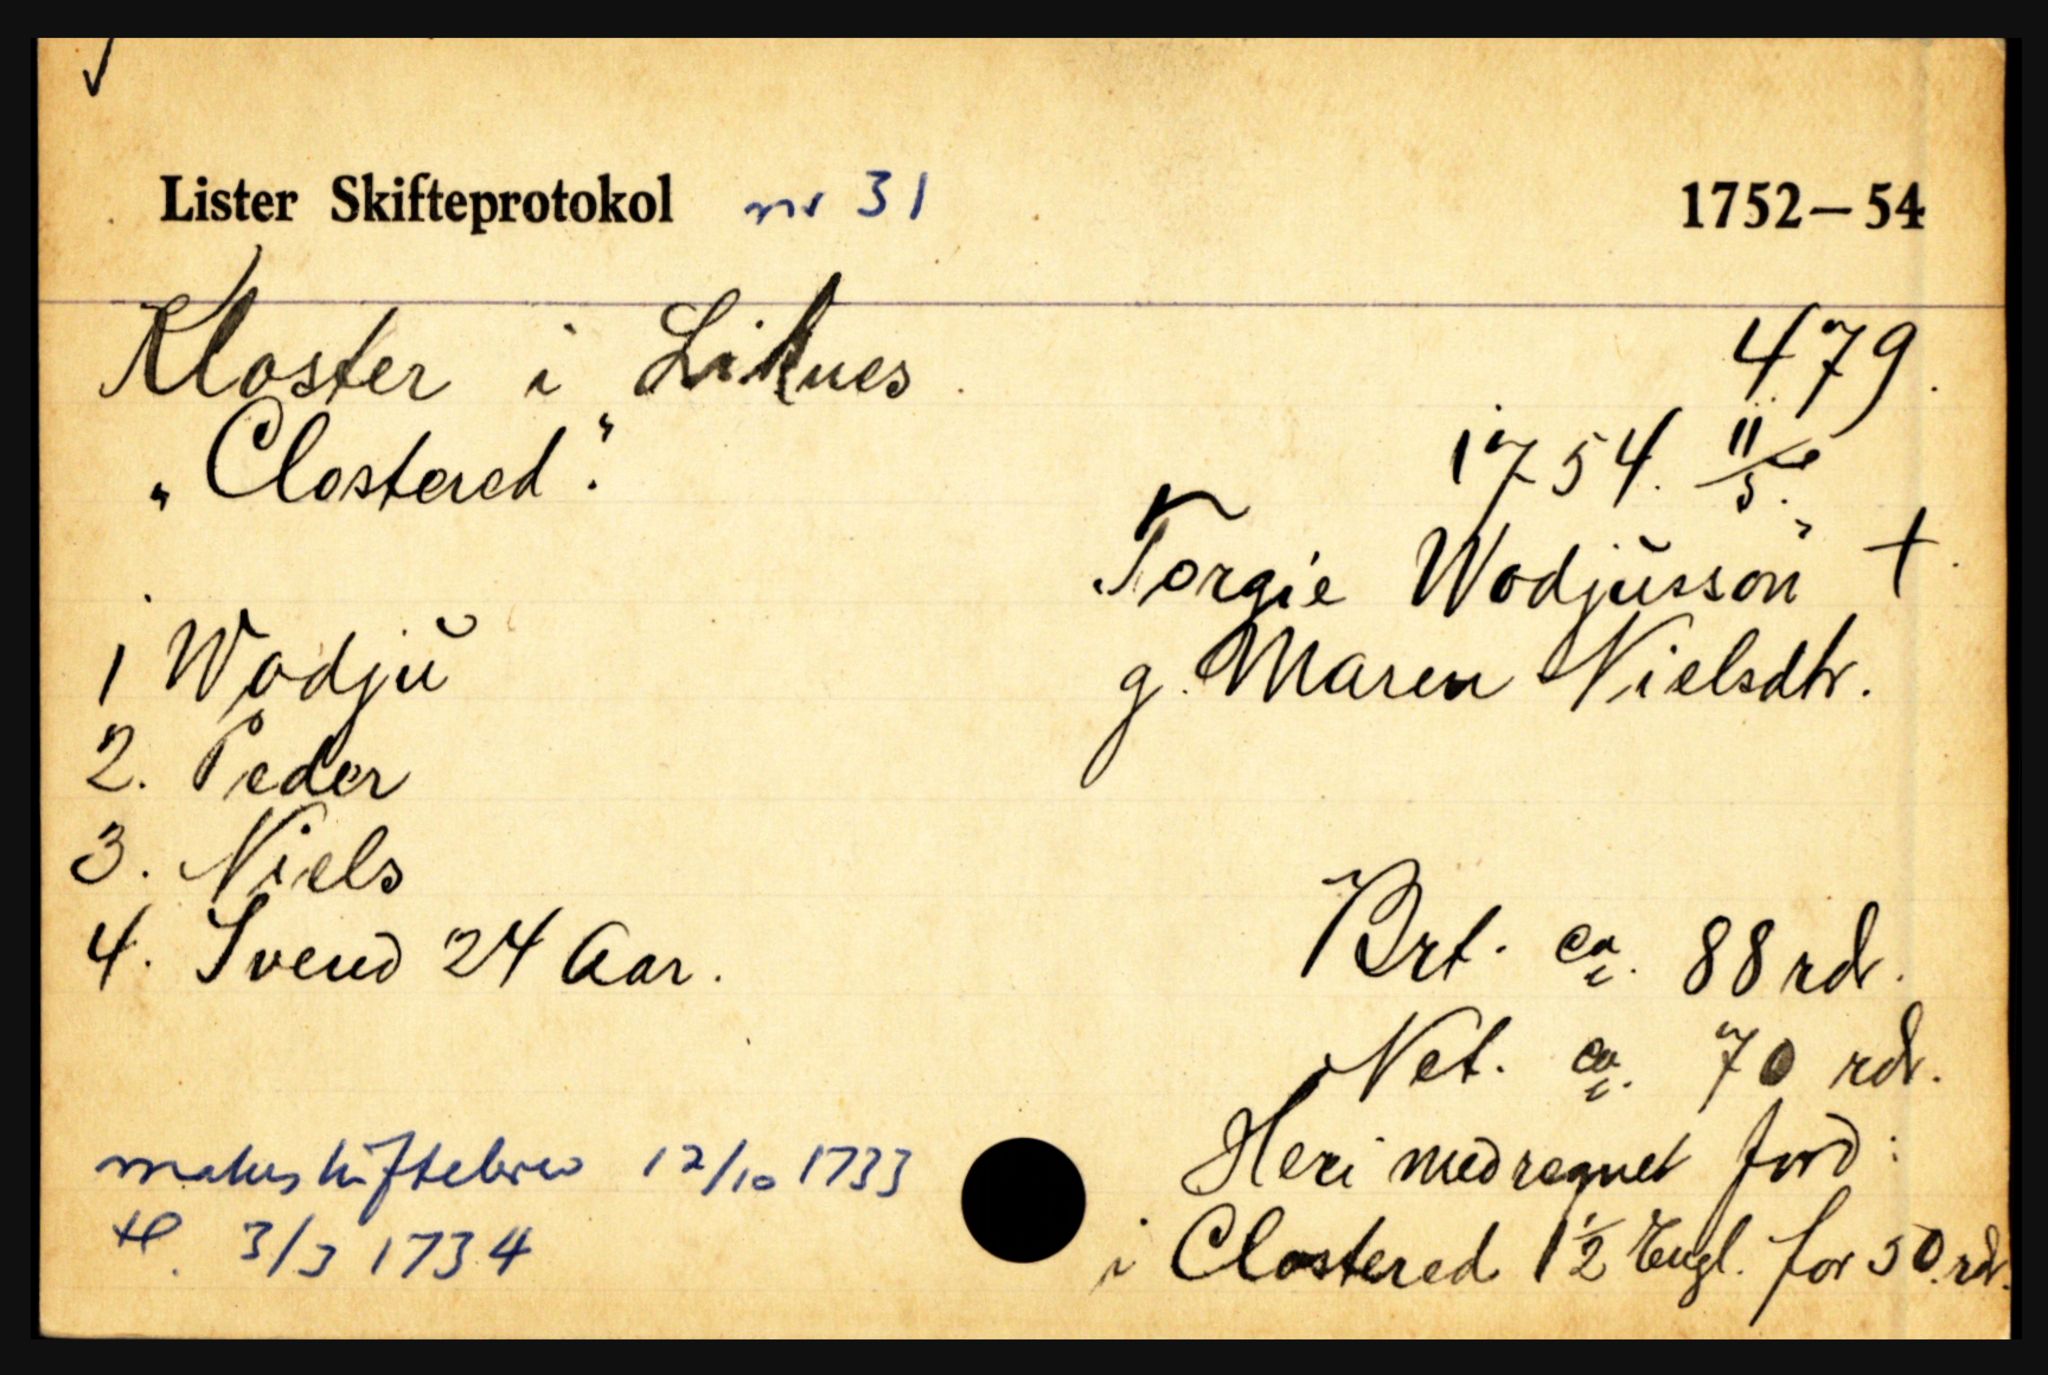 Lister Skifteprotokol nr 31 1752–54
Kloster i Liknes 479.
"Clostered". 1754. 11/5.
Torgie Wodjusson +
g. Maren Nielsdtr.
1 Wodju
2. Peder
3. Niels
4. Svend 24 Aar.
Brt. ca. 88 rdr.
Net. ca. 70 rdr.
Heri medregnet Jord:
i Clostered 1½ Engl. for 50 rdr.
makeskiftebrev 12/10 1733
tl. 3/3 1734